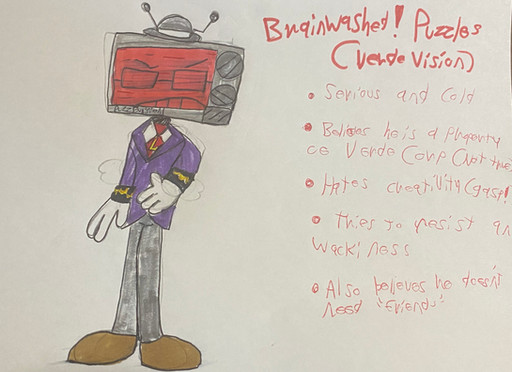 Brainwashed! Puzzles
(Verde Vision)
• Serious and Cold
• Believes he is a Property
of Verde Corp (Not true)
• Hates creativity (gasp!)
• Tries to resist an
Wackiness
• Also believes he doesn't
need "Friends"